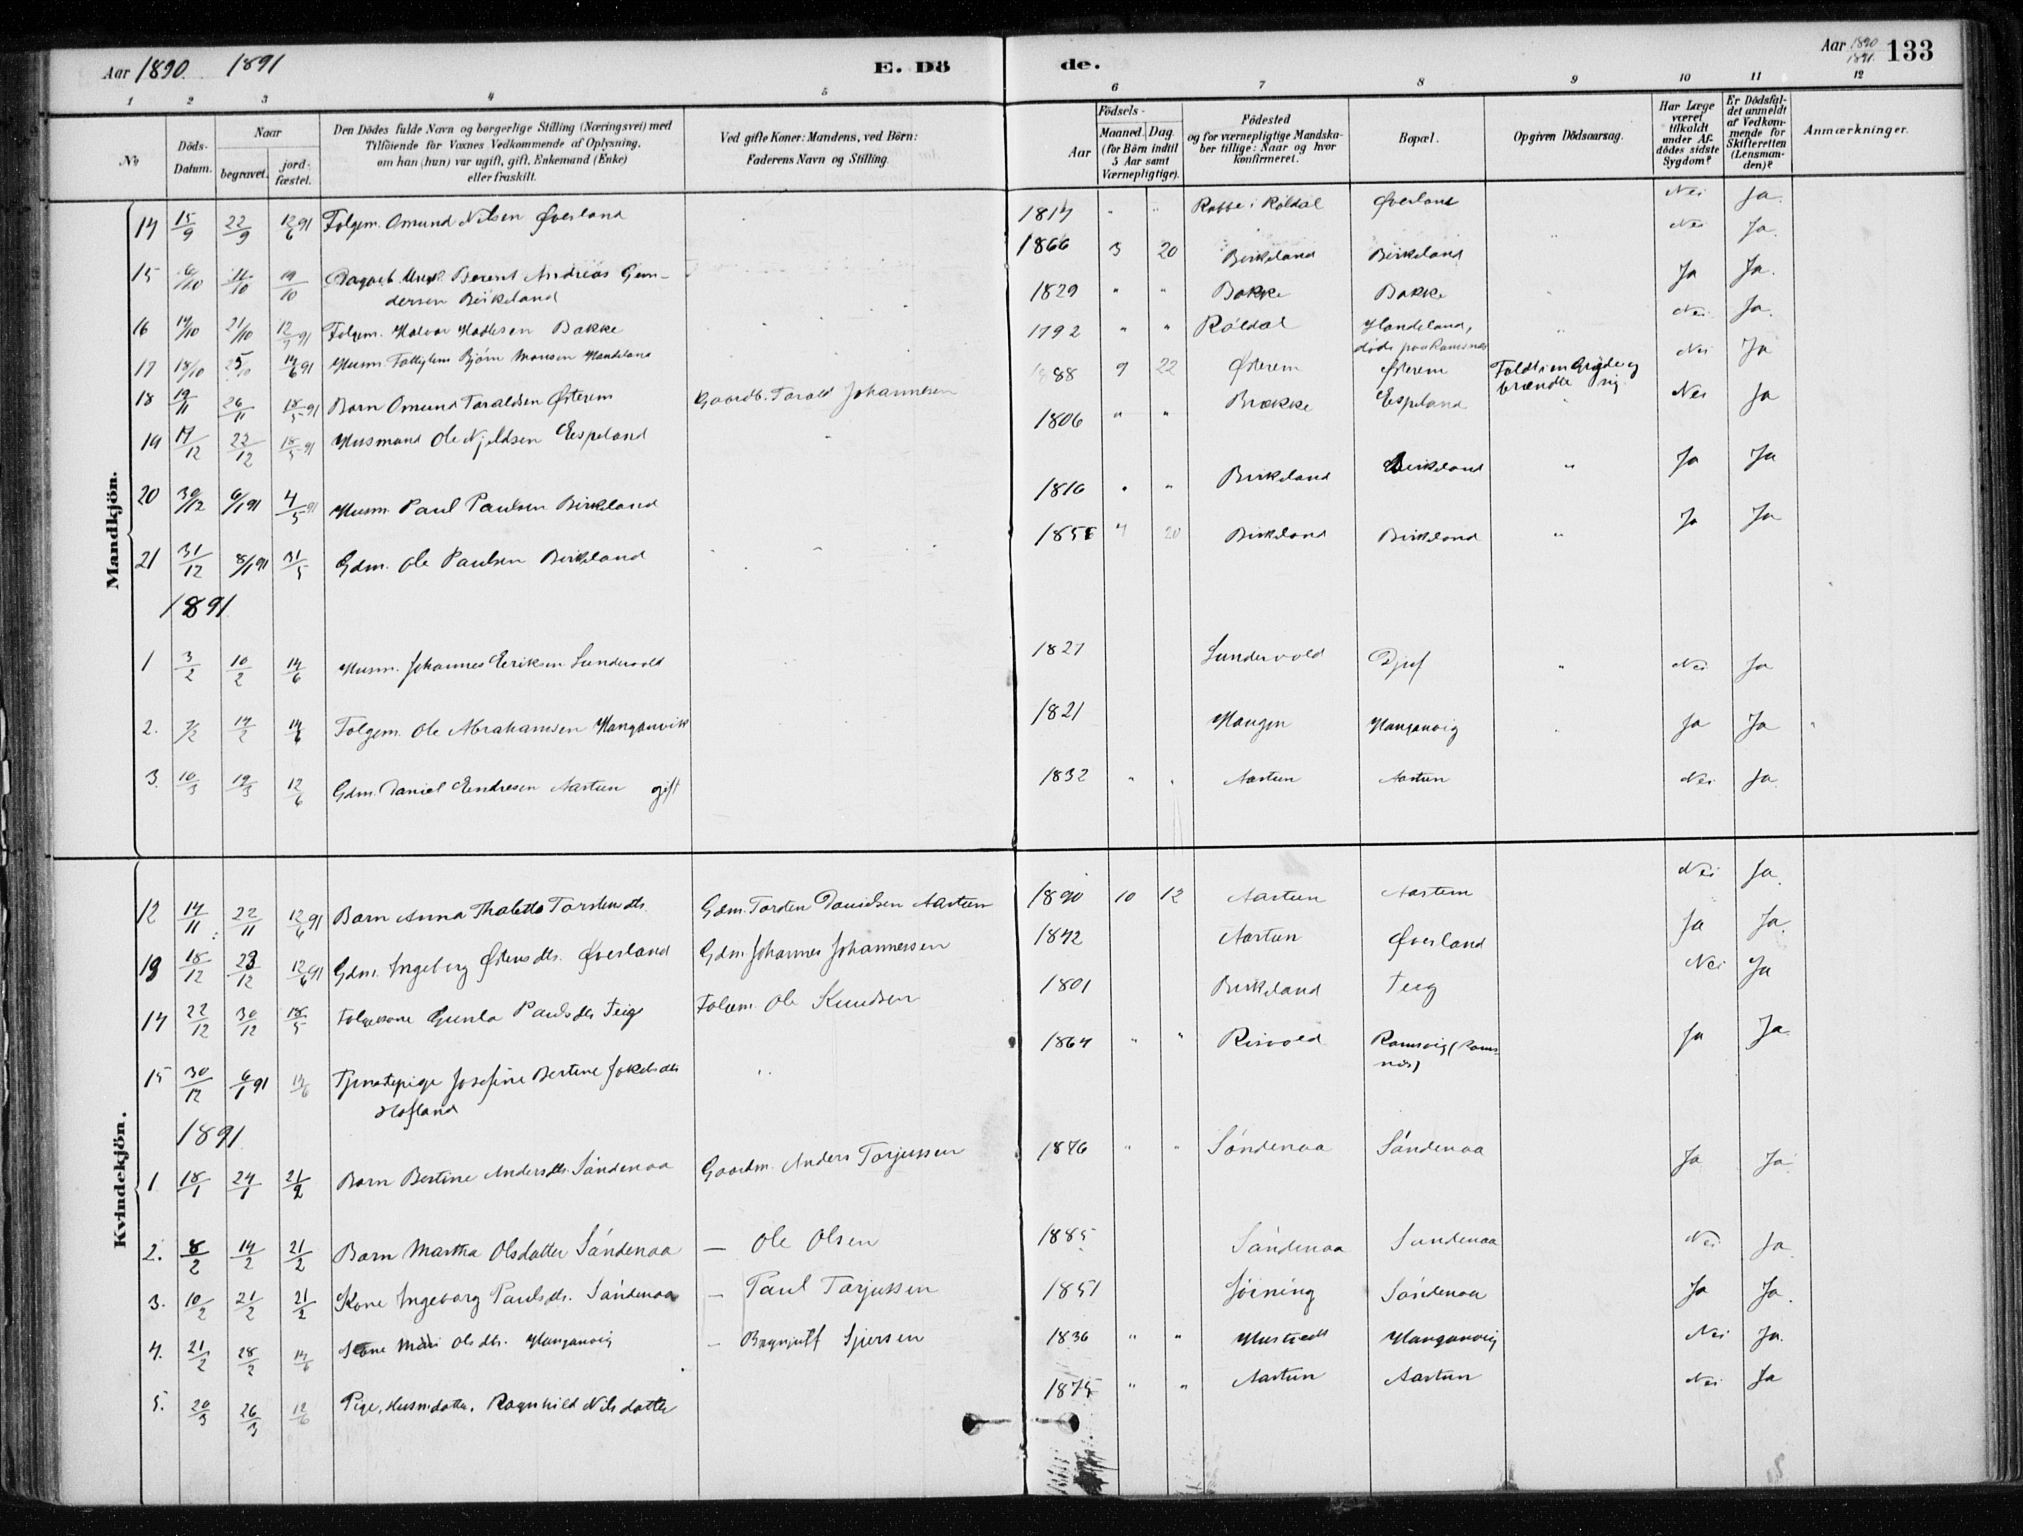 Aar 1890 1891
E. Dö
de.
Aar 1890 1891 133
1 2 3 4 5 6 7 8 9 10 11 12
No
Döds-Datum.
Naar
begravet.
jord-fæstet.
Den Dödes fulde Navn og borgerlige Stilling (Næringsvei) med
Tilföiende for Voxnes Vedkommende af Oplysning,
om han (hun) var ugift, gift, Enkemand (Enke)
eller fraskilt.
Ved gifte Koner: Mandens, ved Börn:
Faderens Navn og Stilling.
Födsels-
Aar
Maaned. Dag.
(for Börn indtil 5 Aar samt Værnepligtige).
Födested
og for værnepligtige Mandska-
ber tillige: Naar og hvor
konfirmeret.
Bopæl.
Opgiven Dödsaarsag.
Har Læge været tilkaldt under Afdödes sidste Sygdom?
Er Dödsfaldet anmeldt af Vedkommende for Skifteretten (Lensmanden)?
Anmærkninger.
Mandkjön.
14 15/9 22/9 12/6 91 Folgem. Omund Nilsen Øverland 1817 " " Rabbe i Røldal Øverland Nei Ja.
15 6/10 11/10 19/10 Berent Andreas Gun-
dersen Birkeland 1866 3 20 Birkeland Birkeland Nei Ja.
16 14/10 21/10 91 Folgem. Halvor Hadlesen Bakke 1829 " " Bakke Bakke Ja Ja.
17 18/10 25/10 14/6 91 Husm. Bjørn Monsen Handeland 1792 " " Røldal Handeland, Nei Ja.
døde paa Ramsnæs
18 19/11 26/11 18/5 91 Barn Omund Taraldsen Østerem Gaardb. Tarald Johannesen 1888 9 22 Østerem Østerem Faldt i en Gryde og
brændte sig. Nei Ja
19 17/12 22/12 18/5 91 Husmand Ole Njeldsen Espeland 1806 " " Brekke Espeland Nei Ja
20 30/12 6/1 91 4/5 91 Husm. Paul Paulsen Birkeland 1816 " " Birkeland Birkeland " Ja Ja
21 31/12 8/1 91 31/5 Gdm. Ole Paulsen Birkeland 4 20 Birkeland Birkeland " Ja Ja
1891
1 3/2 10/2 14/6 Husm. Johannes Eeriksen Sundervold 1821 Sundervold Djuf Nei Ja
2. 7/2 14/2 14/6 Folgem. Ole Abrahamsen Hanganvik 1821 Haugen Hanganvig Ja Ja
3. 10/3 19/3 12/6 Gdm. Daniel Eendresen Aartun gift 1832 " " Aartun Aartun Nei Ja.
Kvindekjön.
12 14/11 22/11 12/6 91 Barn Anna Thalette Torstensdtr. Gdm. Torsten Danielsen Aartun 1890 10 12 Aartun Aartun Nei Ja.
13 18/12 23/12 12/6 91 Gdm. Ingeborg Østensdtr. Øverland Gdm. Johannes Johannessen 1842 Aartun Øverland Ja Ja.
14 22/12 30/12 18/5 Folgekone Gunla Paulsdtr Teig Folgem. Ole Knudsen 1801 Birkeland Teig Nei Ja
15 30/12 6/1 91 14/6 Tjenestepige Josefine Bertine Jokelsdtr
Hofland 1864 " " Risvold Ramsvig (Rams-
næs) Ja Ja.
1891
1 18/1 24/1 21/2 Barn Bertine Andersdtr. Såndenaa Gaardm. Anders Torjussen 1876 " " Såndenaa Såndenaa Ja Ja.
2. 8/2 14/2 21/2 Barn Martha Olsdatter Såndenaa — Ole Olsen 1885 Såndenaa Sandenaa Nei Ja.
3. 10/2 21/2 21/2 Kone Ingeborg Paulsdtr. Såndenaa — Paul Torjussen 1851 Såndenaa Ja Ja.
4. 21/2 28/2 14/6 Kone Mari Olsdtr. Hanganvig — 1836 " " Hanganvig Nei Ja.
5. 20/3 26/3 12/6 Pige, Husm.datter, Ragnhild Nilsdatter 1875 " " Aartun Aartun Nei Ja